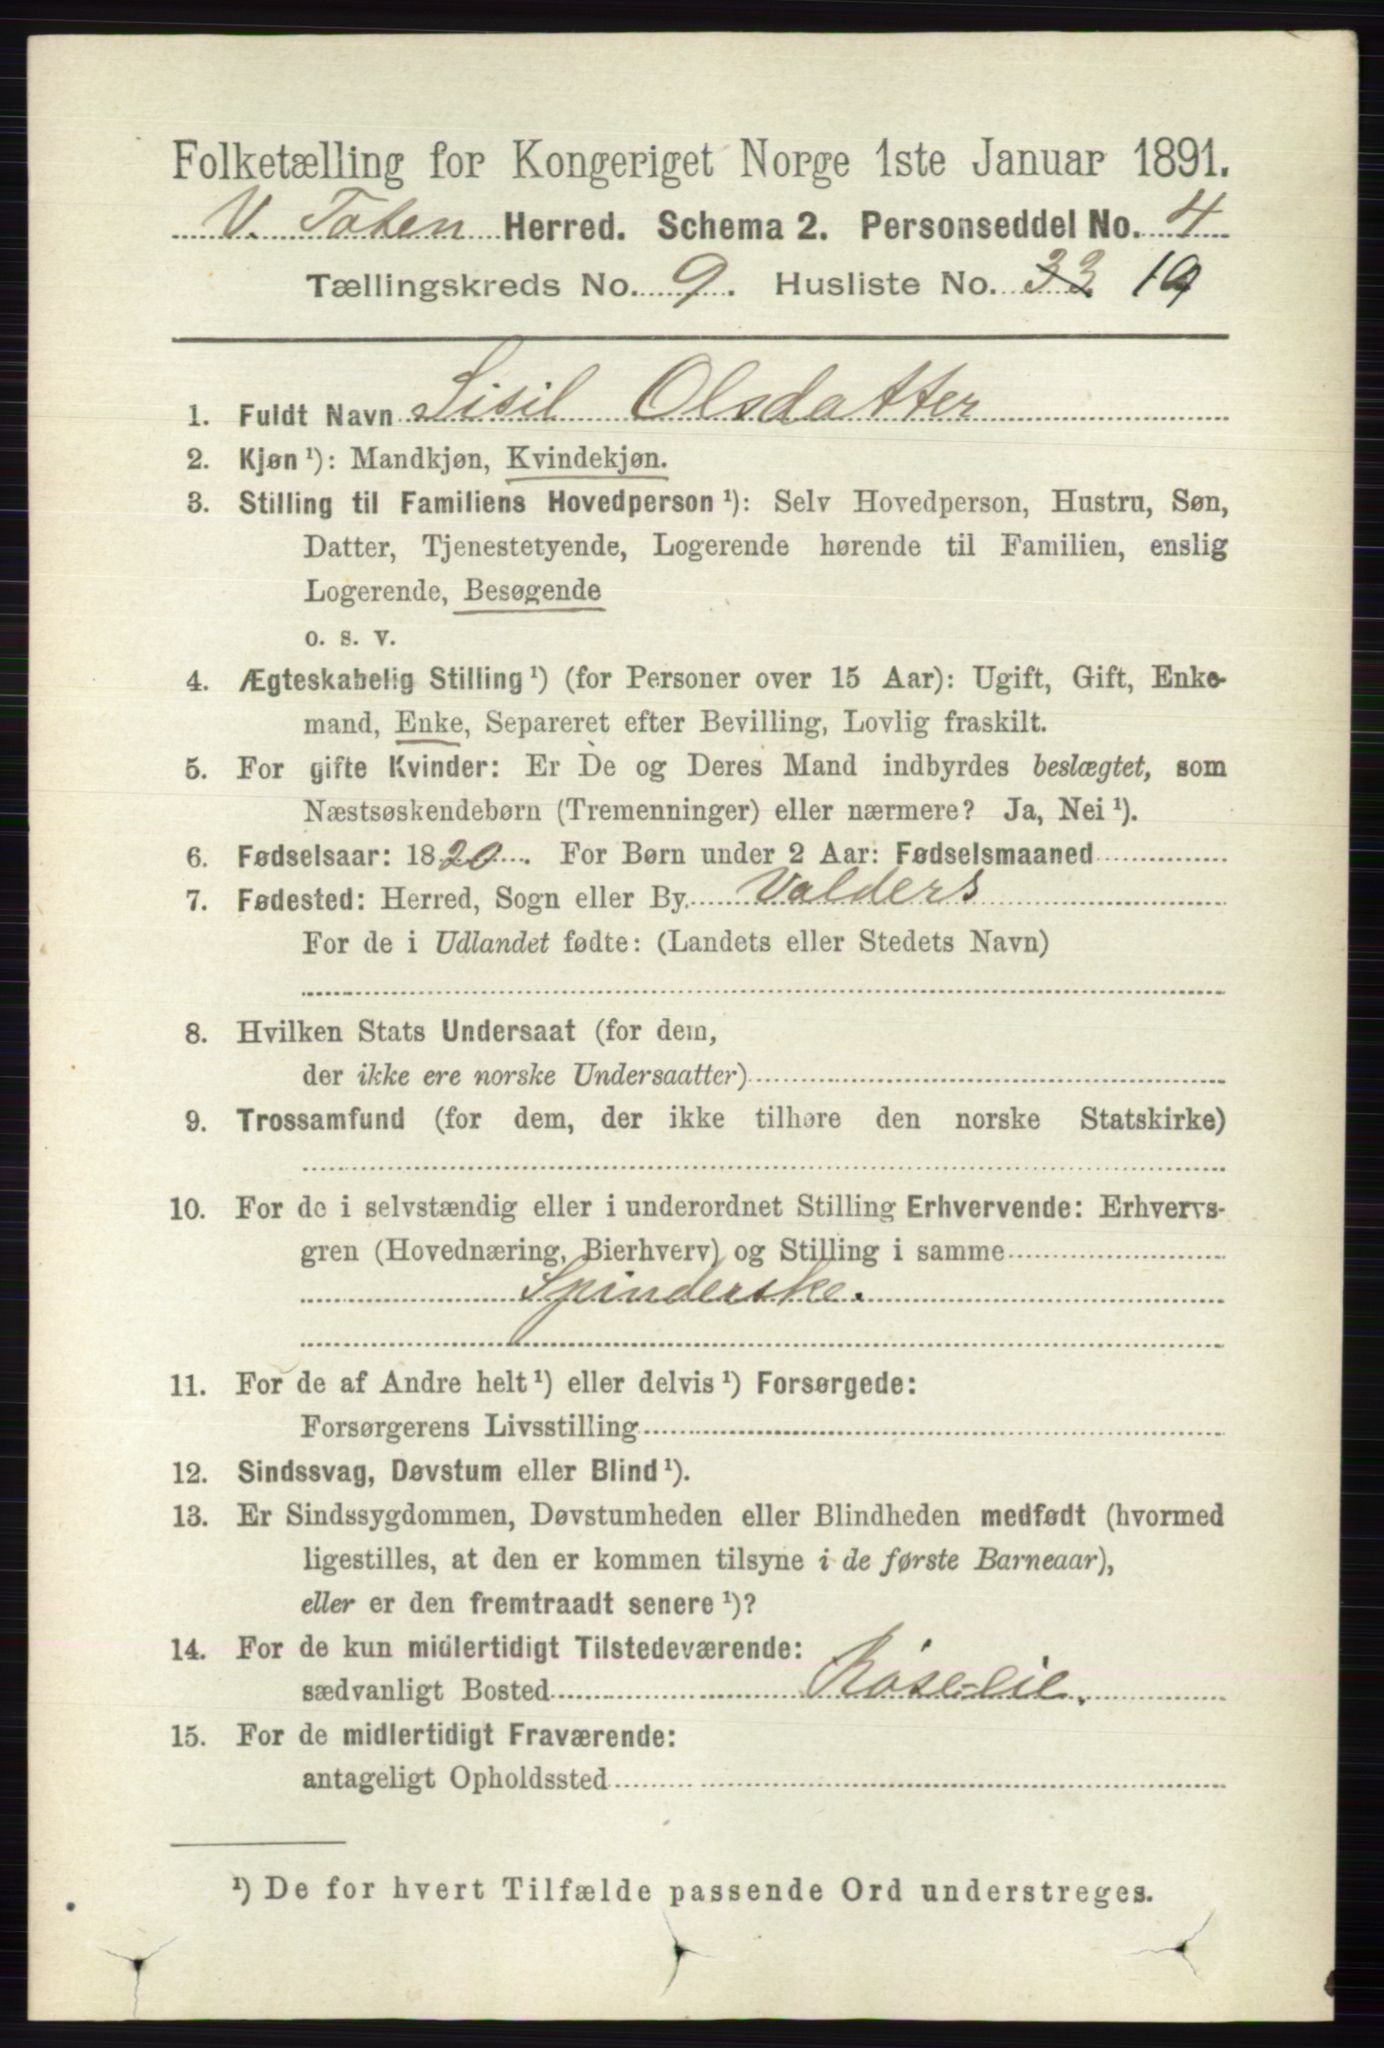 Folketælling for Kongeriget Norge 1ste Januar 1891.
V. Toten Herred. Schema 2. Personseddel No. 4
Tællingskreds No. 9. Husliste No. 33 19
1. Fuldt Navn Sisil Olsdatter
2. Kjøn ¹): Mandkjøn, Kvindekjøn.
3. Stilling til Familiens Hovedperson ¹): Selv Hovedperson, Hustru, Søn,
Datter, Tjenestetyende, Logerende hørende til Familien, enslig
Logerende, Besøgende
o. s. v.
4. Ægteskabelig Stilling ¹) (for Personer over 15 Aar): Ugift, Gift, Enke-
mand, Enke, Separeret efter Bevilling, Lovlig fraskilt.
5. For gifte Kvinder: Er De og Deres Mand indbyrdes beslægtet, som
Næstsøskendebørn (Tremenninger) eller nærmere? Ja, Nei ¹).
6. Fødselsaar: 1820. For Børn under 2 Aar: Fødselsmaaned
7. Fødested: Herred, Sogn eller By Valders
For de i Udlandet fødte: (Landets eller Stedets Navn)
8. Hvilken Stats Undersaat (for dem,
der ikke ere norske Undersaatter)
9. Trossamfund (for dem, der ikke tilhøre den norske Statskirke)
10. For de i selvstændig eller i underordnet Stilling Erhvervende: Erhvervs-
gren (Hovednæring, Bierhverv) og Stilling i samme
Spinderske.
11. For de af Andre helt ¹) eller delvis ¹) Forsørgede:
Forsørgerens Livsstilling
12. Sindssvag, Døvstum eller Blind ¹).
13. Er Sindssygdommen, Døvstumheden eller Blindheden medfødt (hvormed
ligestilles, at den er kommen tilsyne i de første Barneaar),
eller er den fremtraadt senere ¹)?
14. For de kun midlertidigt Tilstedeværende:
sædvanligt Bosted
15. For de midlertidigt Fraværende:
antageligt Opholdssted
¹) De for hvert Tilfælde passende Ord understreges.